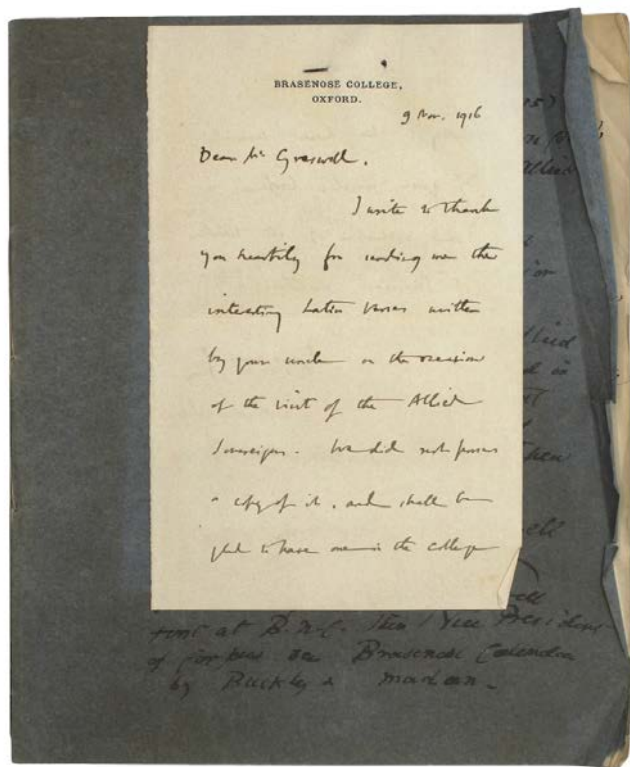 BRASENOSE COLLEGE,
OXFORD.
9 Nov. 1916
Dear Mr Greswell,
I write to thank
you heartily for sending me the
interesting Latin Verses written
by your uncle on the occasion
of the visit of the Allied
Sovereigns. We did not possess
a copy of it, and shall be
glad to have one in the College
15)
Allied
or
in
then
ell
at B.N.C. then Vice President
of Corpus see Brasenose Calendar
by Buckley & Madan.